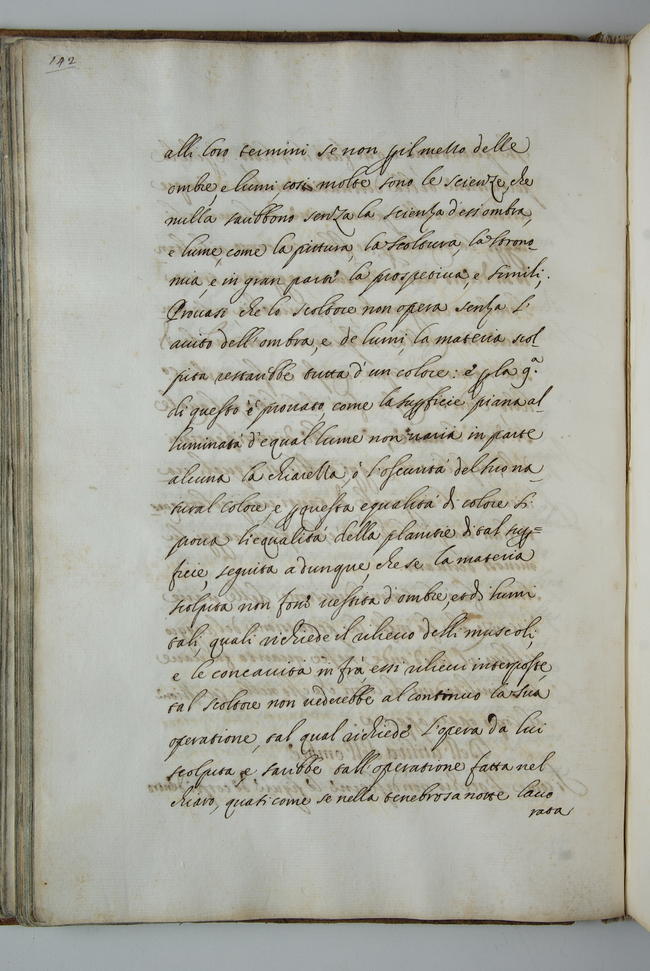 142
alli loro termini se non p il mezzo delle
ombre, e lumi così molte sono le scienze, che
nulla sarebbono senza la scienza d'essi ombra,
e lume, come la pittura, la scoltura, la strono-
mia, e in gran parte la prospetiva, e simili;
Provasi che lo scoltore non opera senza l'
aiuto dell'ombra, e de lumi, la materia scol
pita restarebbe tutta d'un colore: e p la 9.ª
di questo è provato, come la supficie piana al-
luminata d'equal lume non varia in parte
alcuna la chiarezza, o l'oscurità del suo na-
tural colore, e p questa equalità di colore si
prova l'equalità della planitie di tal supp=
ficie, seguita adunque, che se la materia
scolpita non fosse vestita d'ombre, et di lumi
tali, quali richiede il rilievo delli muscoli,
e le concavità in frà, essi rilievi interposte,
tal scoltore non vederebbe al continuo la sua
operatione, tal qual richiede l'opera da lui
scolpita e sarebbe tall'operatione fatta nel
chiaro, quasi come se nella tenebrosa notte lavo
rata